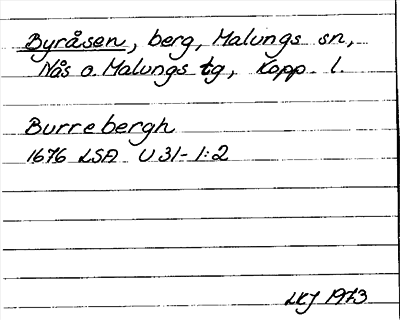 Byråsen, berg, Malungs sn,
Nås o. Malungs tg, Kopp. l.
Burrebergh
1676 LSA U 31-1:2
LKJ 1973